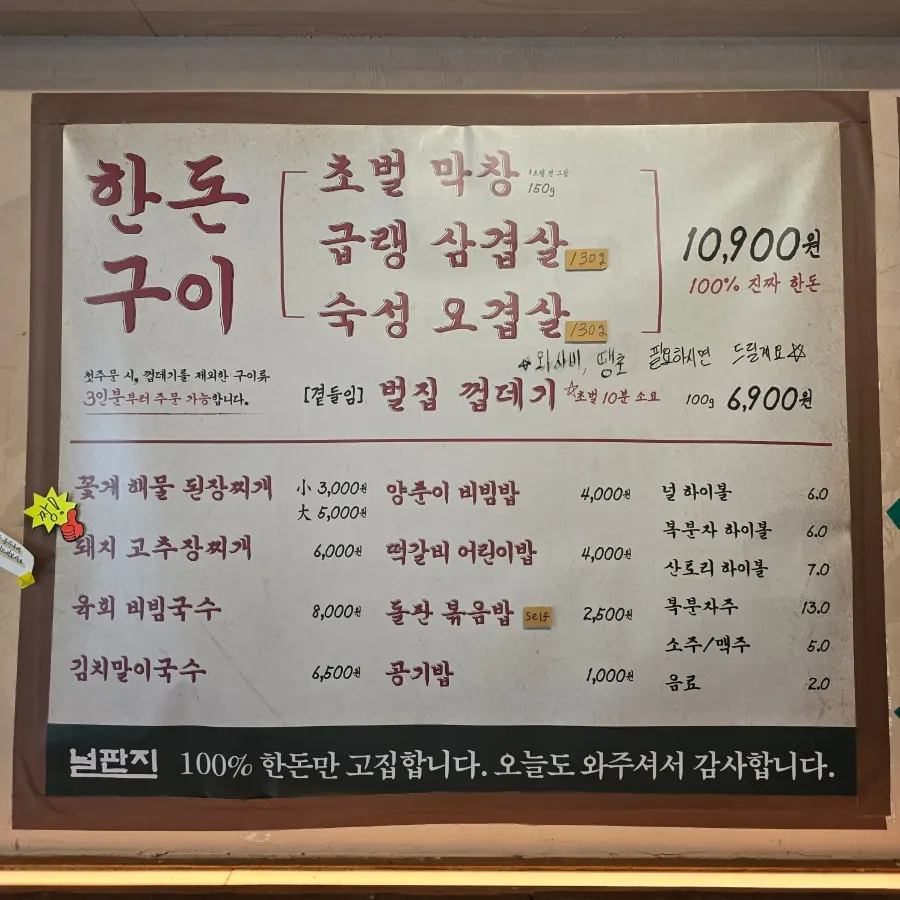 한돈
구이
초벌 막창 150g
급랭 삼겹살 130g
숙성 오겹살 130g
10,900원
100% 진짜 한돈
☆ 와사비, 땡초 필요하시면 드릴게요☆
첫주문 시, 껍데기를 제외한 구이류
3인분부터 주문 가능합니다.
[곁들임] 벌집 껍데기 ☆초벌 10분 소요 100g 6,900원
짱!
꽃게 해물 된장찌개 小 3,000원
大 5,000원
돼지 고추장찌개 6,000원
육회 비빔국수 8,000원
김치말이국수 6,500원
양푼이 비빔밥 4,000원
떡갈비 어린이밥 4,000원
돌판 볶음밥 self 2,500원
공기밥 1,000원
널 하이볼 6.0
복분자 하이볼 6.0
산토리 하이볼 7.0
복분자주 13.0
소주/맥주 5.0
음료 2.0
널판지 100% 한돈만 고집합니다. 오늘도 와주셔서 감사합니다.